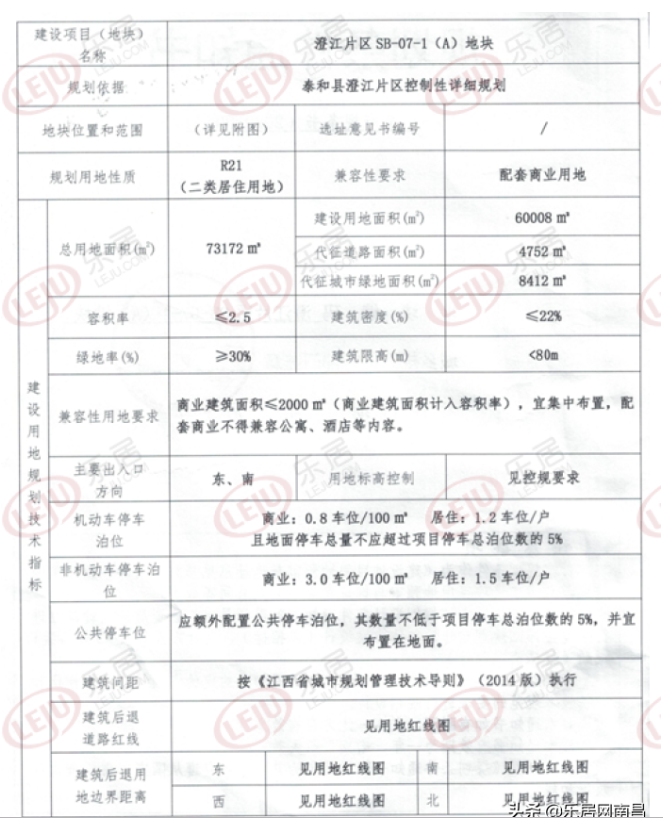 建设项目（地块）
名称
澄江片区 SB-07-1（A）地块
规划依据
泰和县澄江片区控制性详细规划
地块位置和范围
（详见附图）
选址意见书编号
/
规划用地性质
R21
（二类居住用地）
兼容性要求
配套商业用地
建设用地规划技术指标
总用地面积(㎡)
73172 ㎡
建设用地面积(㎡)
60008 ㎡
代征道路面积(㎡)
4752 ㎡
代征城市绿地面积(㎡)
8412 ㎡
容积率
≤2.5
建筑密度(%)
≤22%
绿地率(%)
≥30%
建筑限高(m)
<80m
兼容性用地要求
商业建筑面积≤2000 ㎡（商业建筑面积计入容积率），宜集中布置，配
套商业不得兼容公寓、酒店等内容。
主要出入口
方向
东、南
用地标高控制
见控规要求
机动车停车
泊位
商业：0.8 车位/100 ㎡ 居住：1.2 车位/户
且地面停车总量不应超过项目停车总泊位数的 5%
非机动车停车泊
位
商业：3.0 车位/100 ㎡ 居住：1.5 车位/户
公共停车位
应额外配置公共停车泊位，其数量不低于项目停车总泊位数的 5%，并宜
布置在地面。
建筑间距
按《江西省城市规划管理技术导则》（2014 版）执行
建筑后退
道路红线
见用地红线图
建筑后退用
地边界距离
东
见用地红线图
南
见用地红线图
西
见用地红线图
北
见用地红线图
LEJU 乐居
LEJU.COM
头条 @乐居网南昌